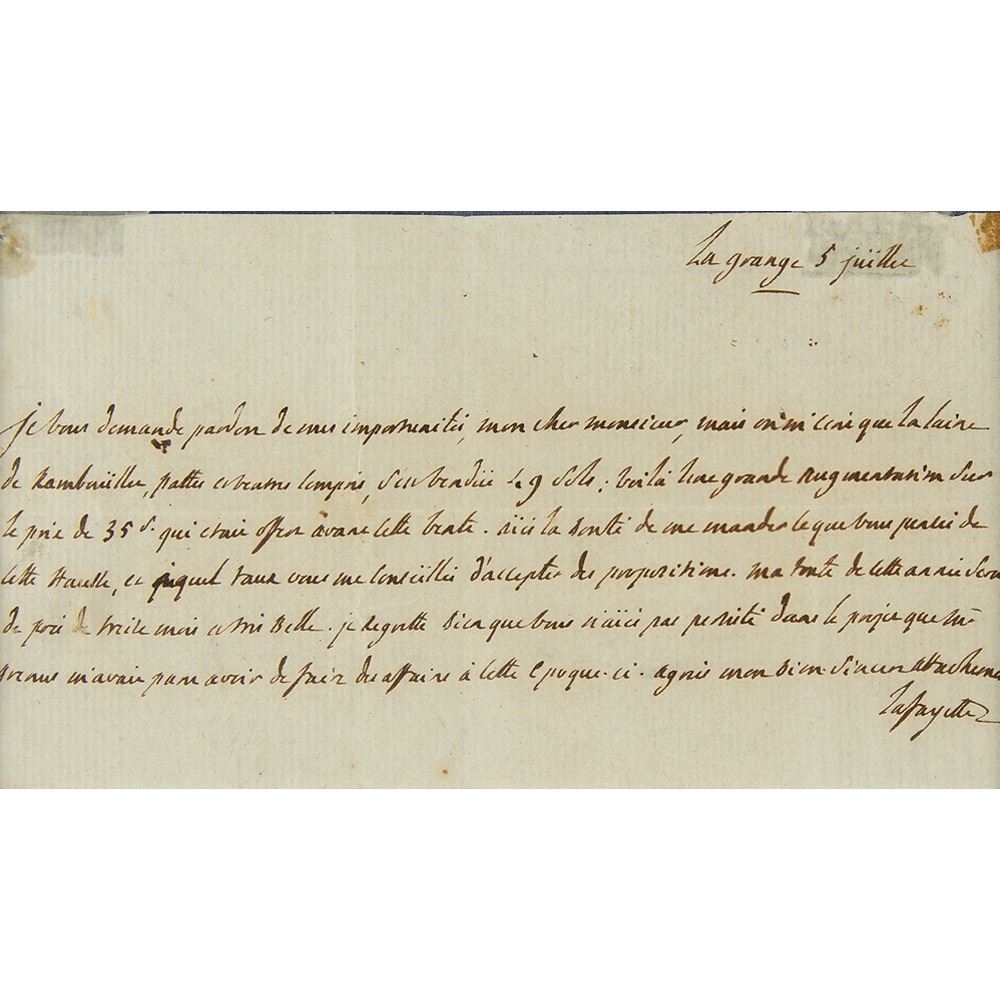 La grange 5 juillet
je vous demande pardon de mes importunités, mon cher monsieur, mais on m'écrit que la laine
de Rambouillet, pattes et ventres compris, s'est vendüe 49 sols; voilà une grande augmentation sur
le prix de 35 s. qui etait offert avant cette vente. aiés la bonté de me mander ce que vous pensés de
cette hausse, et jusquel taux vous me conseillés d'accepter des propositions. ma tonte de cette année sera
de près de treize mois et très belle. je regrette bien que vous n'aiiés pas persisté dans le projet que Mr
m'avait paru avoir de faire des affaires à cette epoque-ci. agréés mon bien sincere attachement
Lafayette